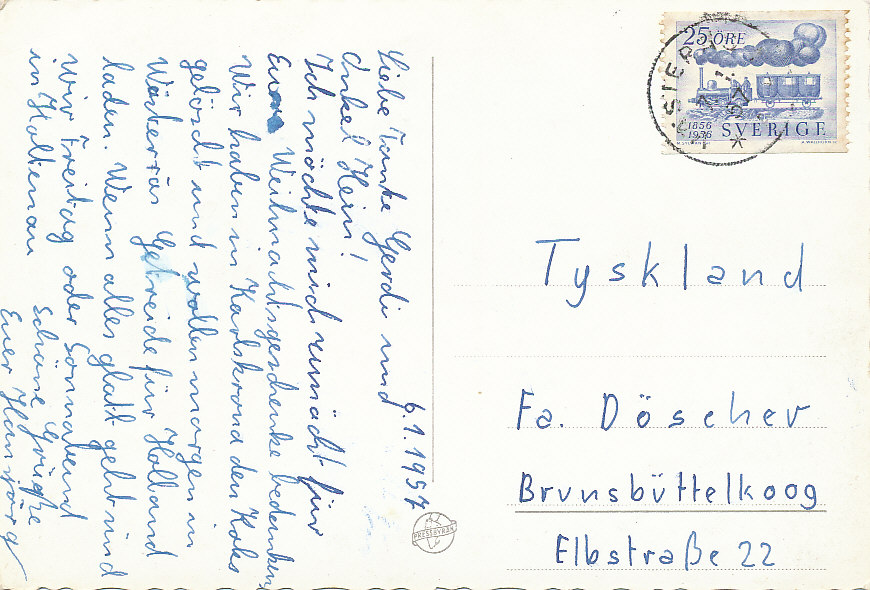 6.1.1957
Liebe Tante Gerdi und
Onkel Hein!
Ich möchte mich zunächst für
Eure Weihnachtsgeschenke bedanken,
Wir haben in Karlskrona den Koks
gelöscht und wollen morgen in
Västerrås Getreide für Holland
laden. Wenn alles glatt geht sind
wir Freitag oder Sonnabend
in Holtenau
Schöne Grüße
Euer Hansjörg
PRESSBYRÅN
25 ÖRE
1856
1956
SVERIGE
Tyskland
Fa. Döscher
Brunsbüttelkoog
Elbstraße 22